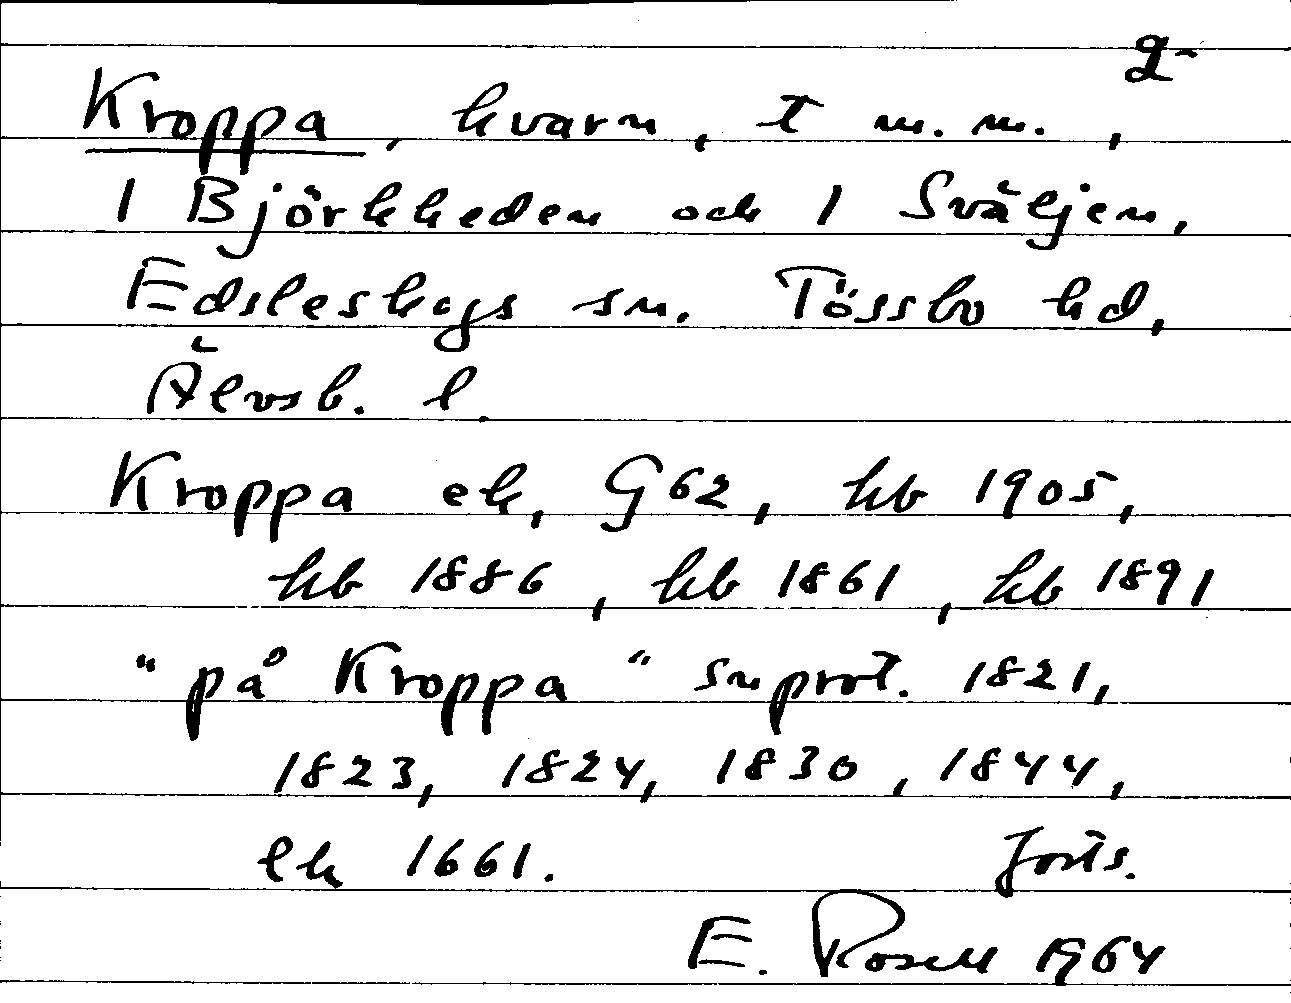 2
Kroppa, kvarn, t m. m.,
1 Björkheden och 1 Sväljen,
Edsleskogs sn. Tössbo hd,
Älvsb. l.
Kroppa ek, G62, hb 1905,
hb 1886, hb 1861, hb 1891
"på Kroppa" snprot. 1821,
1823, 1824, 1830, 1844,
ek 1661. Forts.
E. Rosell 1964